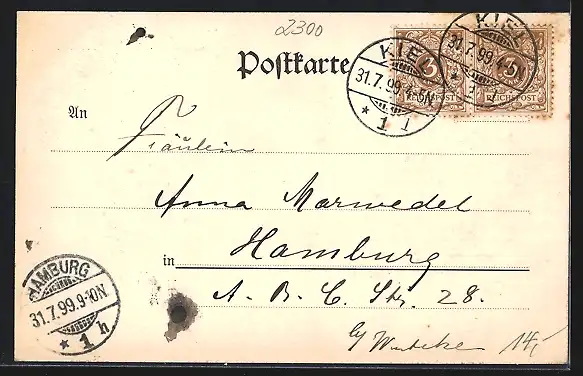 2300
Postkarte
KIEL
31.7.99.4-5N
* 1 1
KIEL
31.7.99.4-5N
* 1 1
3
REICHSPOST
REICHSPOST
An
Fräulein
Anna Marwedel
in Hamburg
A. B. C. Str. 28.
b/
14,-
HAMBURG
31.7.99.9-10N
* 1 h